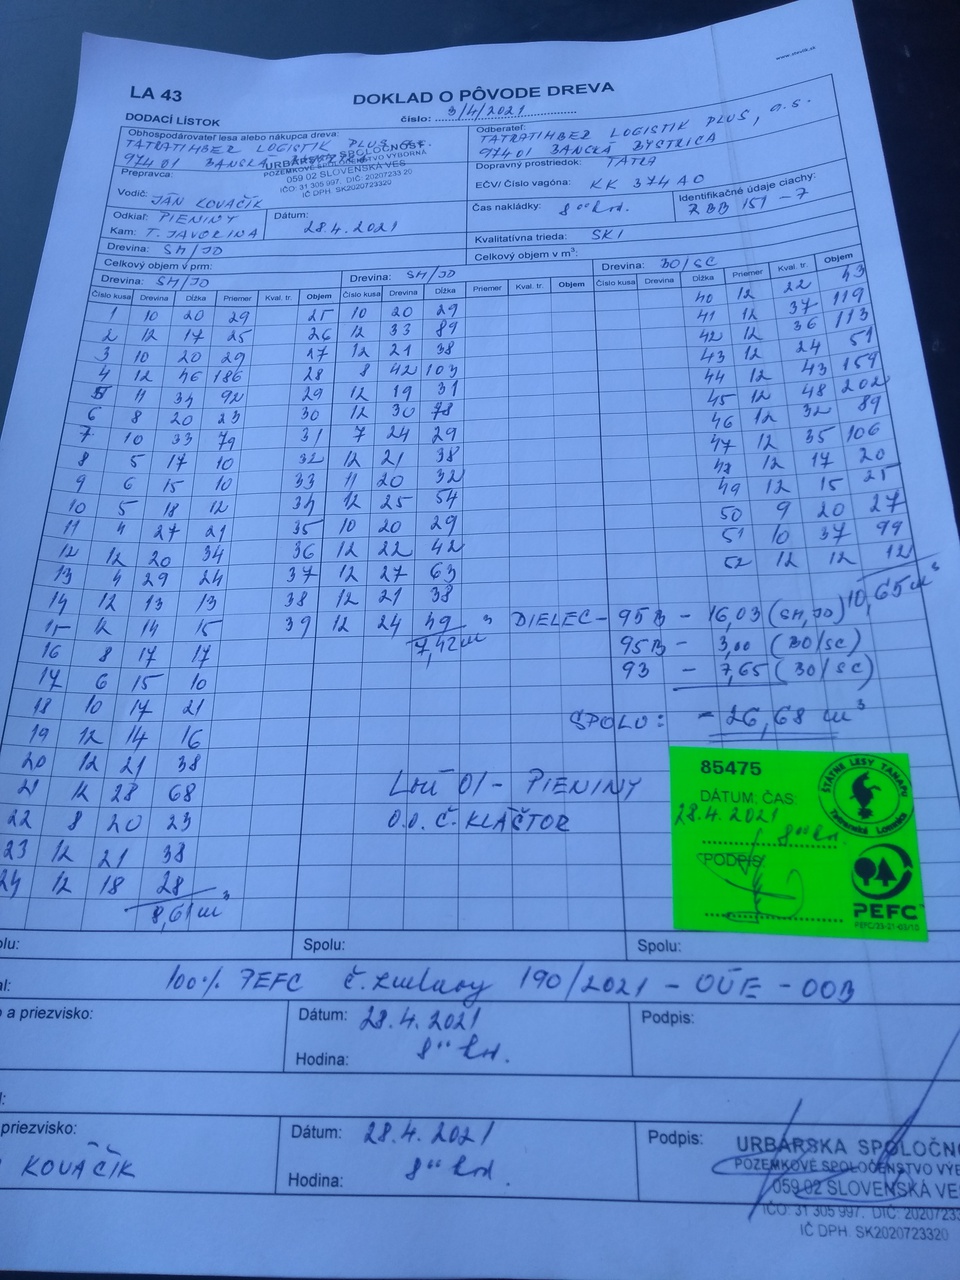 www.sevt.sk
LA 43
DOKLAD O PÔVODE DREVA
DODACÍ LÍSTOK
číslo: 3/4/2021
Obhospodárovateľ lesa alebo nákupca dreva:
TATRATIMBER LOGISTIK PLUS, a.s.
97401 BANSKÁ
URBÁRSKA SPOLOČNOSŤ
POZEMKOVÉ SPOLOČENSTVO VÝBORNÁ
059 02 SLOVENSKÁ VES
IČO: 31 305 997, DIČ: 20207233 20
IČ DPH. SK2020723320
Odberateľ:
TATRATIMBER LOGISTIK PLUS, a.s.
97401 BANSKÁ BYSTRICA
Prepravca:
Dopravný prostriedok: TATRA
Vodič: JÁN KOVÁČIK
EČV/ Číslo vagóna: KK 374 AO
Odkiaľ: PIENINY
Kam: T. JAVORINA
Dátum:
28.4.2021
Čas nakládky: 8 00 hod.
Identifikačné údaje ciachy:
ZBB 151-7
Drevina: SM/JD
Kvalitatívna trieda: SKI
Celkový objem v prm:
Celkový objem v m3:
Drevina: SM/JD
Drevina: SM/JD
Drevina: BO/SC
Číslo kusa Drevina Dĺžka Priemer Kval. tr. Objem Číslo kusa Drevina Dĺžka Priemer Kval. tr. Objem Číslo kusa Drevina Dĺžka Priemer Kval. tr. Objem
1 10 20 29 25 10 20 29 40 12 22 43
2 12 17 25 26 12 33 89 41 12 37 119
3 10 20 29 27 12 21 38 42 12 36 113
4 12 46 186 28 8 42 103 43 12 24 51
5 11 34 92 29 12 19 31 44 12 43 159
6 8 20 23 30 12 30 78 45 12 48 202
7 10 33 79 31 7 24 29 46 12 32 89
8 5 17 10 32 12 21 38 47 12 35 106
9 6 15 10 33 11 20 32 48 12 17 20
10 5 18 12 34 12 25 54 49 12 15 25
11 4 27 21 35 10 20 29 50 9 20 27
12 12 20 34 36 12 22 42 51 10 37 99
13 4 29 24 37 12 27 63 52 12 12 12
14 12 13 13 38 12 21 38 10,65 m3
15 12 14 15 39 12 24 49 DIELEC - 95B - 16,03 (SM,JD)
16 8 17 17 7,42 m3 95B - 3,00 (BO/SC)
17 6 15 10 93 - 7,65 (BO/SC)
18 10 17 21 SPOLU: - 26,68 m3
19 12 14 16
20 12 21 38
21 12 28 68 LHÚ 01 - PIENINY
22 8 20 23 O.O. Č. KLÁŠTOR
23 12 21 38
24 12 18 28
8,61 m3
85475
DÁTUM, ČAS:
28.4.2021
8 00 hod.
PODPIS:
ŠTÁTNE LESY TANAPU
Tatranská Lomnica
PEFC
olu:
Spolu:
Spolu:
al: 100% PEFC č. zmluvy 190/2021 - OÚE - OOB
o a priezvisko:
Dátum: 28.4.2021
Hodina: 8 00 hod.
Podpis:
l:
priezvisko:
KOVÁČIK
Dátum: 28.4.2021
Hodina: 8 00 hod.
Podpis:
URBÁRSKA SPOLOČNO
POZEMKOVÉ SPOLOČENSTVO VÝB
059 02 SLOVENSKÁ VES
IČO: 31 305 997, DIČ: 20207233
IČ DPH. SK2020723320